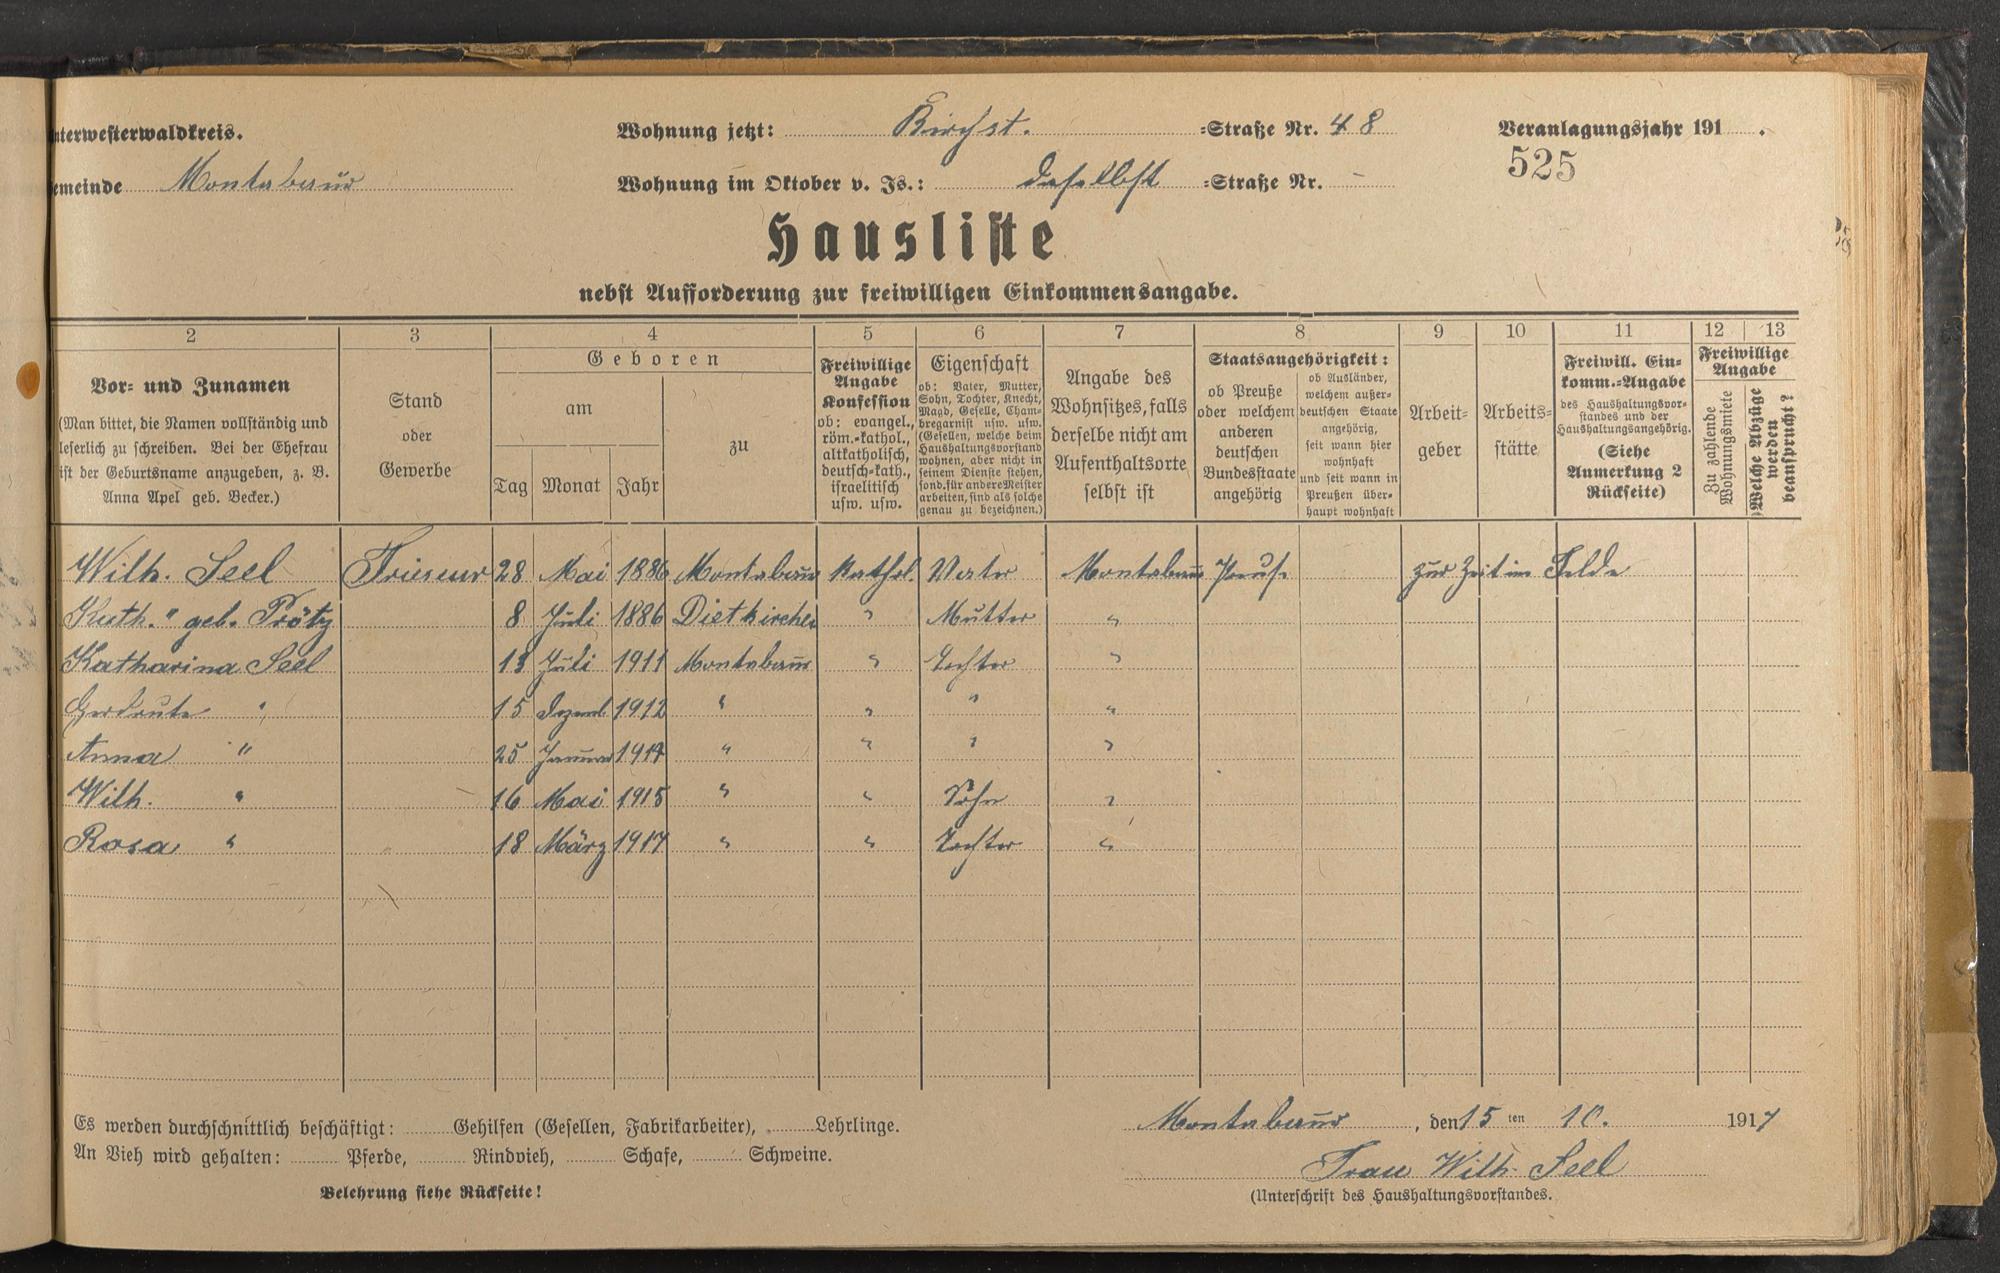 nterwesterwaldkreis.
Wohnung jetzt: Kirchst. =Straße Nr. 48
Veranlagungsjahr 191 .
emeinde Montabaur
Wohnung im Oktober v. Js.: daselbst =Straße Nr. -
525
Hausliste
nebst Aufforderung zur freiwilligen Einkommensangabe.
2 3 4 5 6 7 8 9 10 11 12 13
Vor- und Zunamen
(Man bittet, die Namen vollständig und
leserlich zu schreiben. Bei der Ehefrau
ist der Geburtsname anzugeben, z. B.
Anna Apel geb. Becker.)
Stand
oder
Gewerbe
Geboren
am
Tag Monat Jahr
zu
Freiwillige
Angabe
Konfession
ob: evangel.,
röm.-kathol.,
altkatholisch,
deutsch-kath.,
israelitisch
usw. usw.
Eigenschaft
ob: Vater, Mutter,
Sohn, Tochter, Knecht,
Magd, Geselle, Cham-
bregarnist usw. usw.
(Gesellen, welche beim
Haushaltungsvorstand
wohnen, aber nicht in
seinem Dienste stehen,
sond. für andere Meister
arbeiten, sind als solche
genau zu bezeichnen.)
Angabe des
Wohnsitzes, falls
derselbe nicht am
Aufenthaltsorte
selbst ist
Staatsangehörigkeit:
ob Preuße
oder welchem
anderen
deutschen
Bundesstaate
angehörig
ob Ausländer,
welchem außer-
deutschen Staate
angehörig,
seit wann hier
wohnhaft
und seit wann in
Preußen über-
haupt wohnhaft
Arbeit-
geber
Arbeits-
stätte
Freiwill. Ein-
komm.-Angabe
des Haushaltungsvor-
standes und der
Haushaltungsangehörig.
(Siehe
Anmerkung 2
Rückseite)
Freiwillige
Angabe
Zu zahlende
Wohnungsmiete
Welche Abzüge
werden
beansprucht?
Wilh. Seel Friseur 28 Mai 1886 Montabaur kathol. Vater Montabaur Preuß. zur Zeit im Felde
Kath. " geb. Prötz 8 Juli 1886 Dietkirchen " Mutter "
Katharina Seel 13 Juli 1911 Montabaur " Tochter "
Gertrute " 15 Dezemb. 1912 " " " "
Anna " 25 Januar 1914 " " " "
Wilh. " 16 Mai 1915 " " Sohn "
Rosa " 18 März 1917 " " Tochter "
Es werden durchschnittlich beschäftigt: Gehilfen (Gesellen, Fabrikarbeiter), Lehrlinge.
Montabaur, den 15 ten 10. 1917
An Vieh wird gehalten: Pferde, Rindvieh, Schafe, Schweine.
Frau Wilh. Seel
Belehrung siehe Rückseite!
(Unterschrift des Haushaltungsvorstandes.